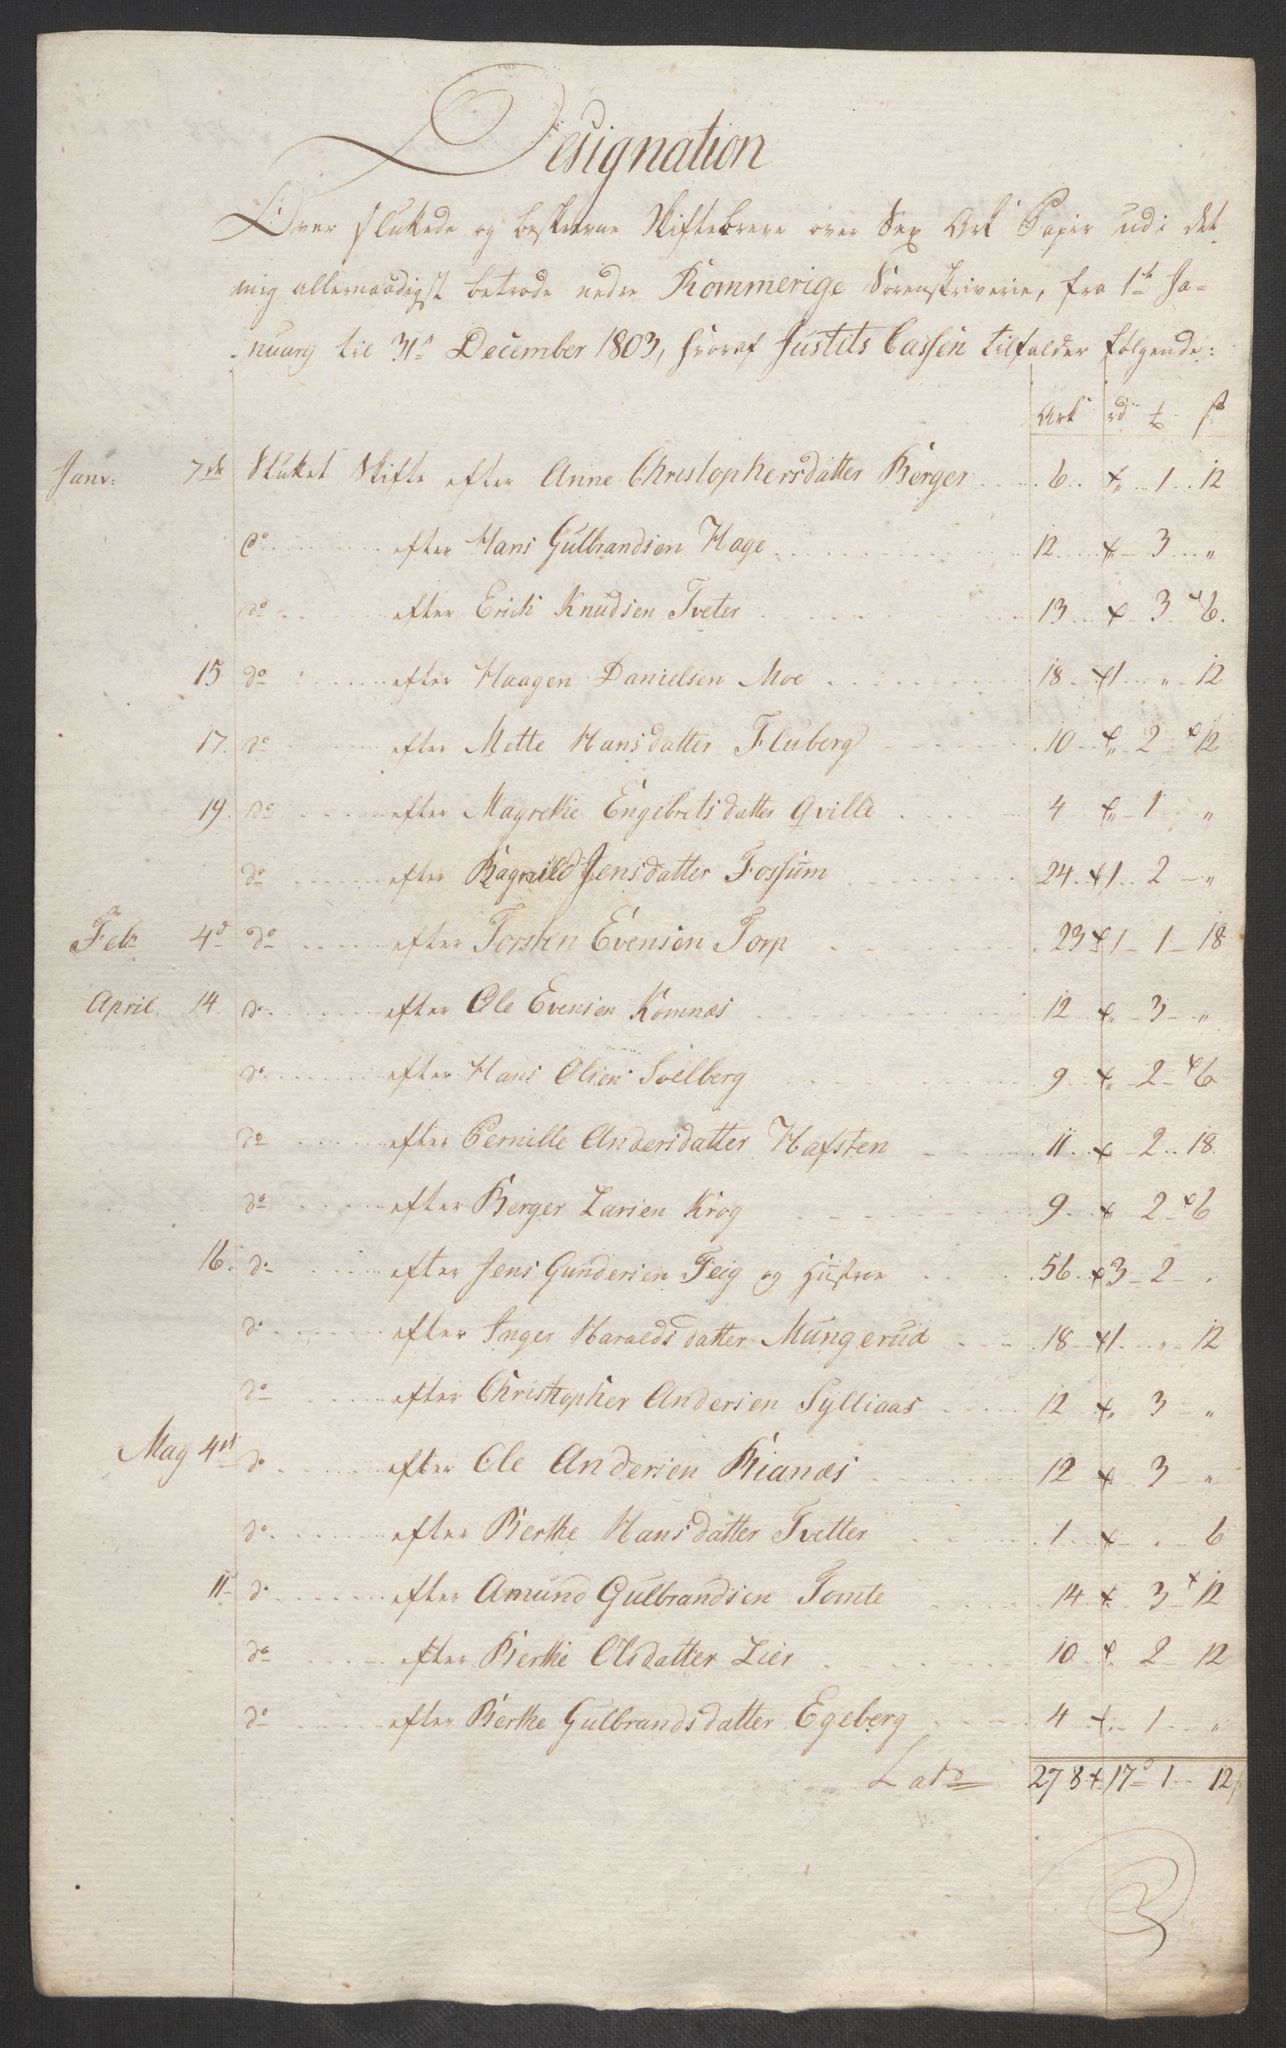 Designation
Over sluttede og beskrevne Skiftebreve over Sex Ark Papir udi det
mig allernaadigst betroede nedre Rommerige Sorenskriverie, fra 1te Ja-
nuarij til 31te December 1803, hvoraf Justits Cassen tilfalder følgende:
Ark rd ß
Janv: 7de Sluttet Skifte efter Anne Christophersdatter Berger 6 " 1 12
do efter Hans Gulbrandsen Hage 12 " 3 "
do efter Erich Knudsen Tveter 13 3 6.
15 do efter Haagen Danielsen Moe 18 1 " 12
17. do efter Mette Hansdatter Fluberg 10 " 2 12
19. do efter Magrethe Engebretsdatter Qville 4 " 1 "
do efter Ragnild Jensdatter Fossum 24 1 2 "
Feb: 4d do efter Torsten Evensen Torp 23 1 1 18
April. 14 do efter Ole Evensen Komnæs 12 " 3 "
do efter Hans Olsen Soelberg 9 " 2 6
do efter Pernille Andersdatter Hafsten 11 2 18.
do efter Berger Larsen Krog 9 2 6
16. do efter Jens Gundersen Teig og Hustrue 56 3 2 "
do efter Inger Haraldsdatter Mungerud 18 1 " 12
do efter Christopher Andersen Sylliaas 12 " 3 "
May 4de do efter Ole Andersen Rianæs 12 3 "
do efter Berthe Hansdatter Tvetter 1 " 6
11 do efter Amund Gulbrandsen Tomte 14 3 12
do efter Berthe Olsdatter Lier 10 2 12
do efter Berthe Gulbrandsdatter Egeberg 4 1 "
Lat: 278 17 1 12